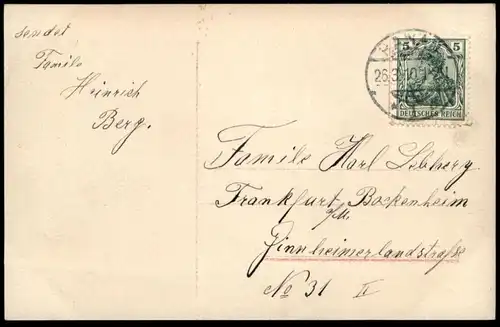 sendet
Familie
Heinrich
Berg.
5 5
26.3.10.
DEUTSCHES REICH
Familie Karl Lebherz
Frankfurt Bockenheim
a/M.
Ginnheimerlandstraße
No 31 II